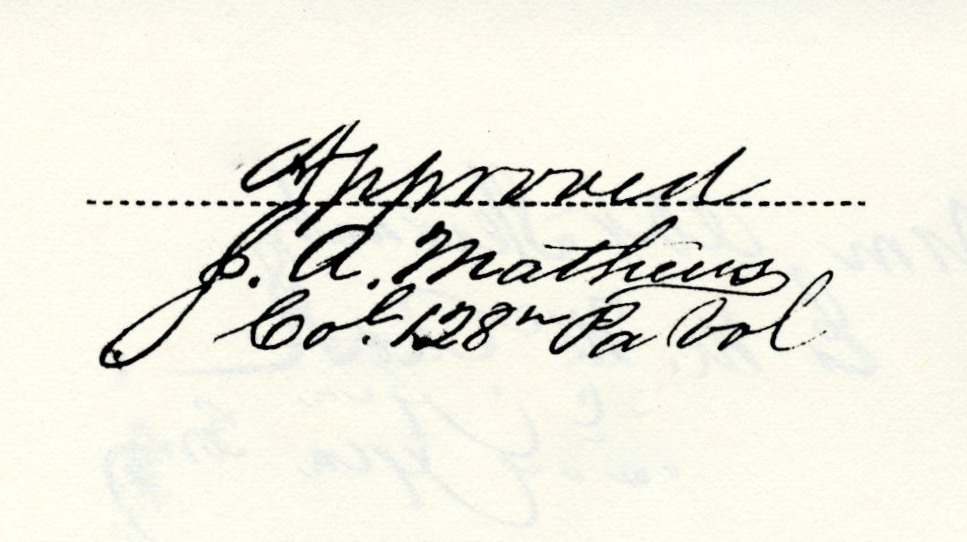 Approved
J. A. Mathews
Col. 128th Pa Vol